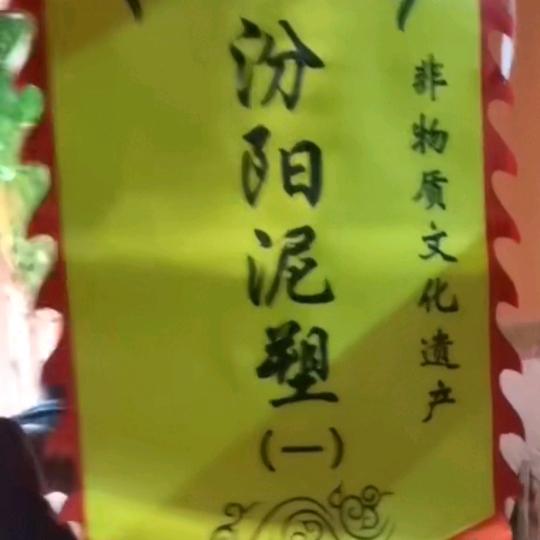 非物质文化遗产
汾阳泥塑
（一）